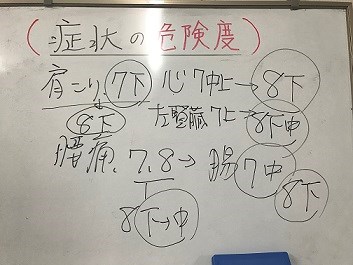 (症状の危険度)
肩こり、7下 心7中上→8下
8下 左腎臓7上→8下中
腰痛、7、8→腸7中
8下→中 8下